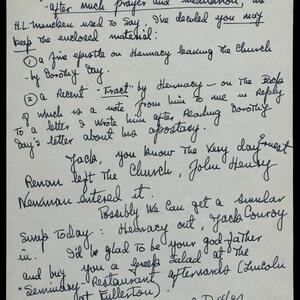 "after much prayer and meditation, as
H.L. Mencken used to say, I've decided you may
keep the enclosed material:
① a fine epistle on Hennacy leaving the Church
- by Dorothy Day.
② a Recent "Tract" by Hennacy - on the Back
of which is a note from him to me in reply
to a letter I wrote him after reading Dorothy
Day's letter about his apostasy.
Jack, you know the very day Ernest
Renan left the Church, John Henry
Newman entered it.
Possibly we can get a similar
swap today: Hennacy out, Jack Conroy
in. I'd be glad to be your god-father
and buy you a Greek Salad at the
"Seminary" Restaurant afterwards (Lincoln
at Fullerton).